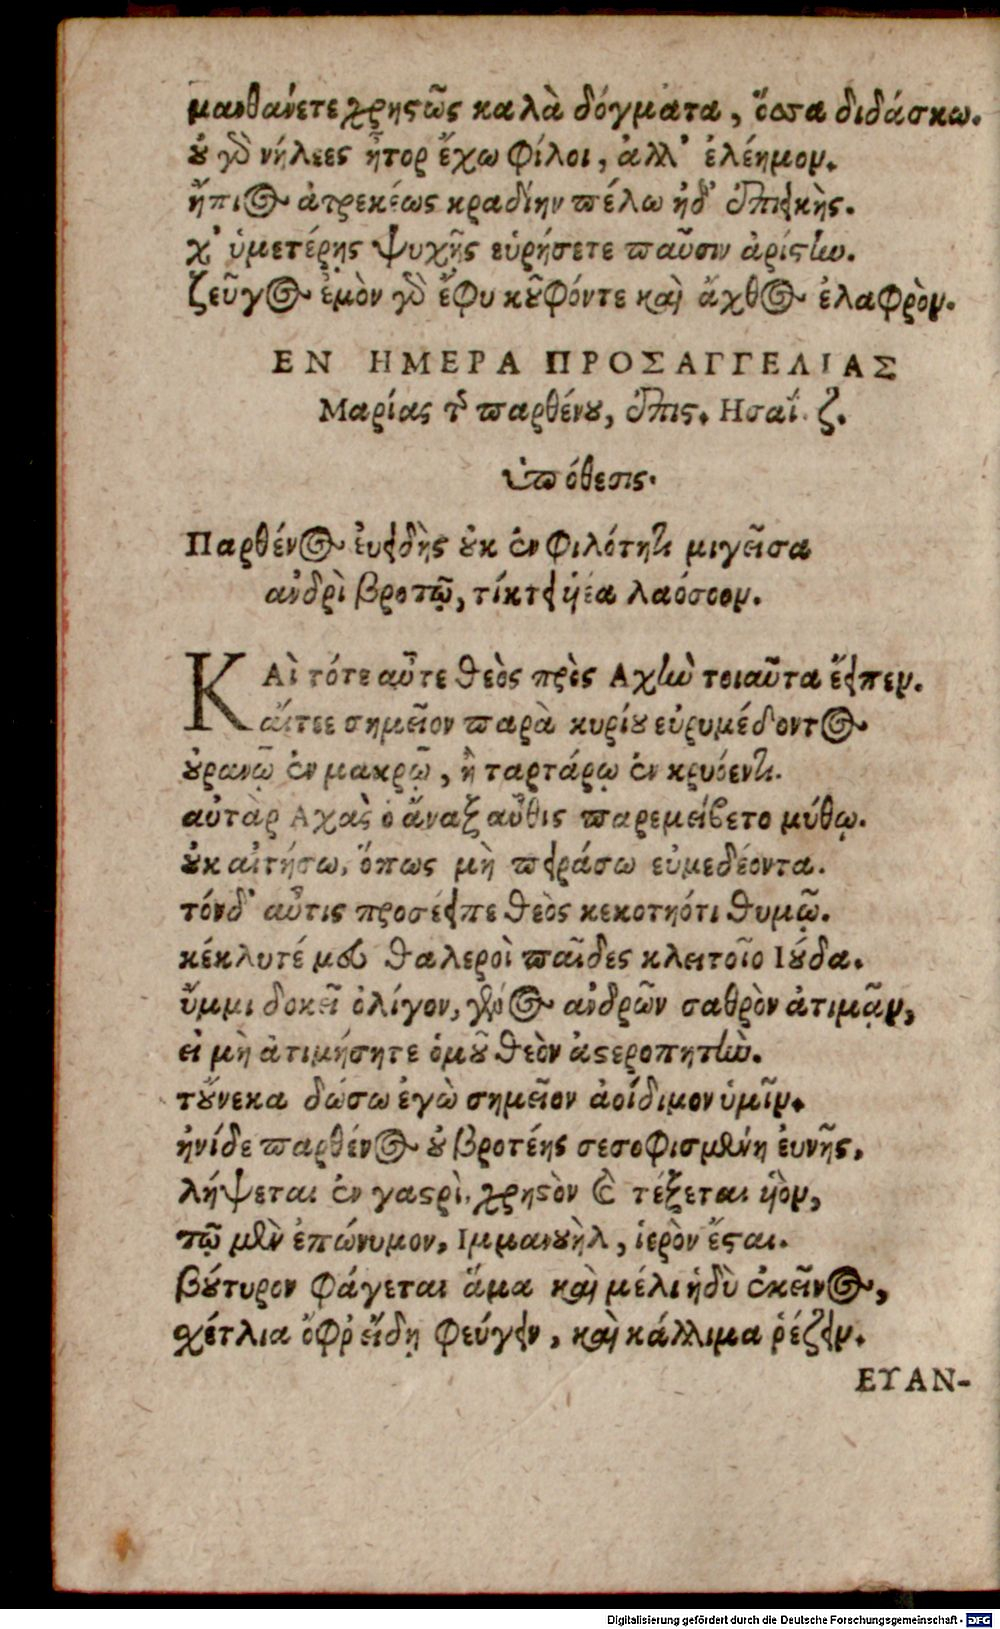 μανθάνετε χρηςῶς καλὰ δόγματα, ὅσσα διδάσκω.
ȣ γὸ νήλεες ἦτορ ἔχω φίλοι, ἀλλ' ἐλέημον.
ἤπιος ἀτρεκέως κραδίην πέλω ἠδ' ἐπιεικὴς.
χ' ὑμετέρης ψυχῆς εὑρήσετε παῦσιν ἀρίςην.
ζεῦγος ἐμὸν γὸ ἔφυ κȣφόντε καὶ ἄχθος ἐλαφρὸν.
ΕΝ ΗΜΕΡΑ ΠΡΟΣΑΓΓΕΛΙΑΣ
Μαρίας τῆ παρθένȣ, ἐπις. Ησαΐ. ζ.
ὑπόθεσις.
Παρθένος ἐυειδὴς ȣκ ἐν φιλότητι μιγεῖσα
ἀνδρὶ βροτῷ, τίκτει ὑέα λαόσσον.
ΚΑὶ τότε αὖτε θεὸς πρὸς Αχὴν τοιαῦτα ἔειπεν.
αἴτεε σημεῖον παρὰ κυρίȣ εὐρυμέδοντος
ȣρανῷ ἐν μακρῷ, ἢ ταρτάρῳ ἐν κρυόεντι.
αὐτὰρ Αχὰς ὁ ἄναξ αὖθις παρεμείβετο μύθῳ.
ȣκ αἰτήσω, ὅπως μὴ πειράσω εὐμεδέοντα.
τόνδ' αὖτις προσέειπε θεὸς κεκοτηότι θυμῷ.
κέκλυτέ μευ θαλεροὶ παῖδες κλειτοῖο Ιȣδα.
ὕμμι δοκεῖ ὀλίγον, γένος ἀνδρῶν σαθρὸν ἀτιμᾷν,
εἰ μὴ ἀτιμήσητε ὁμȣ θεὸν ἀςεροπητὴν.
τȣνεκα δώσω ἐγὼ σημεῖον ἀοίδιμον ὑμῖν.
ἠνίδε παρθένος ȣ βροτέης σεσοφισμένη ἐυνῆς,
λήψεται ἐν γαςρὶ, χρηςὸν καὶ τέξεται ὑὸν,
τῷ μὲν ἐπώνυμον, Ιμμανȣὴλ, ἱερὸν ἔςαι.
βȣτυρον φάγεται ἅμα καὶ μέλι ἡδὺ ἐκεῖνος,
σχέτλια ὄφρ εἴδη φεύγειν, καὶ κάλλιμα ῥέζειν.
ΕΥΑΝ-
Digitalisierung gefördert durch die Deutsche Forschungsgemeinschaft - DFG